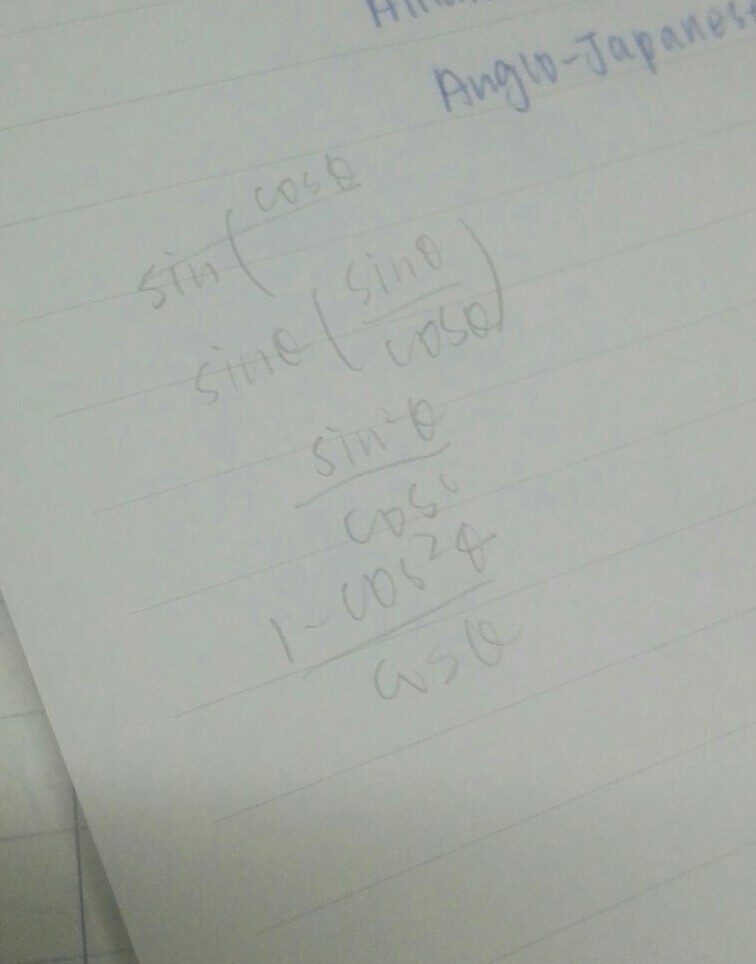 Anglo-Japanese
sin( cosθ
sinθ( sinθ / cosθ )
sin²θ / cosθ
1 - cos²θ / cosθ